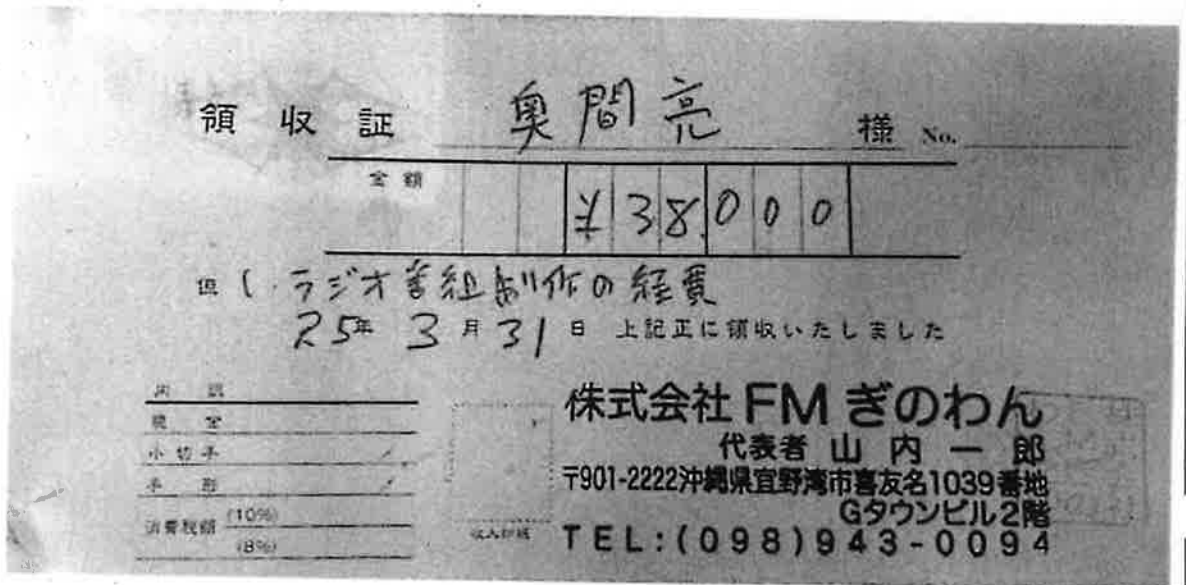 領収証 奥間亮 様 No.
金額 ¥38,000
但し ラジオ番組制作の経費
25年 3月31日 上記正に領収いたしました
内訳
現金
小切手
手形
消費税額 (10%)
(8%)
収入印紙
株式会社 FM ぎのわん
代表者 山内一郎
〒901-2222沖縄県宜野湾市喜友名1039番地
Gタウンビル2階
TEL:(098)943-0094